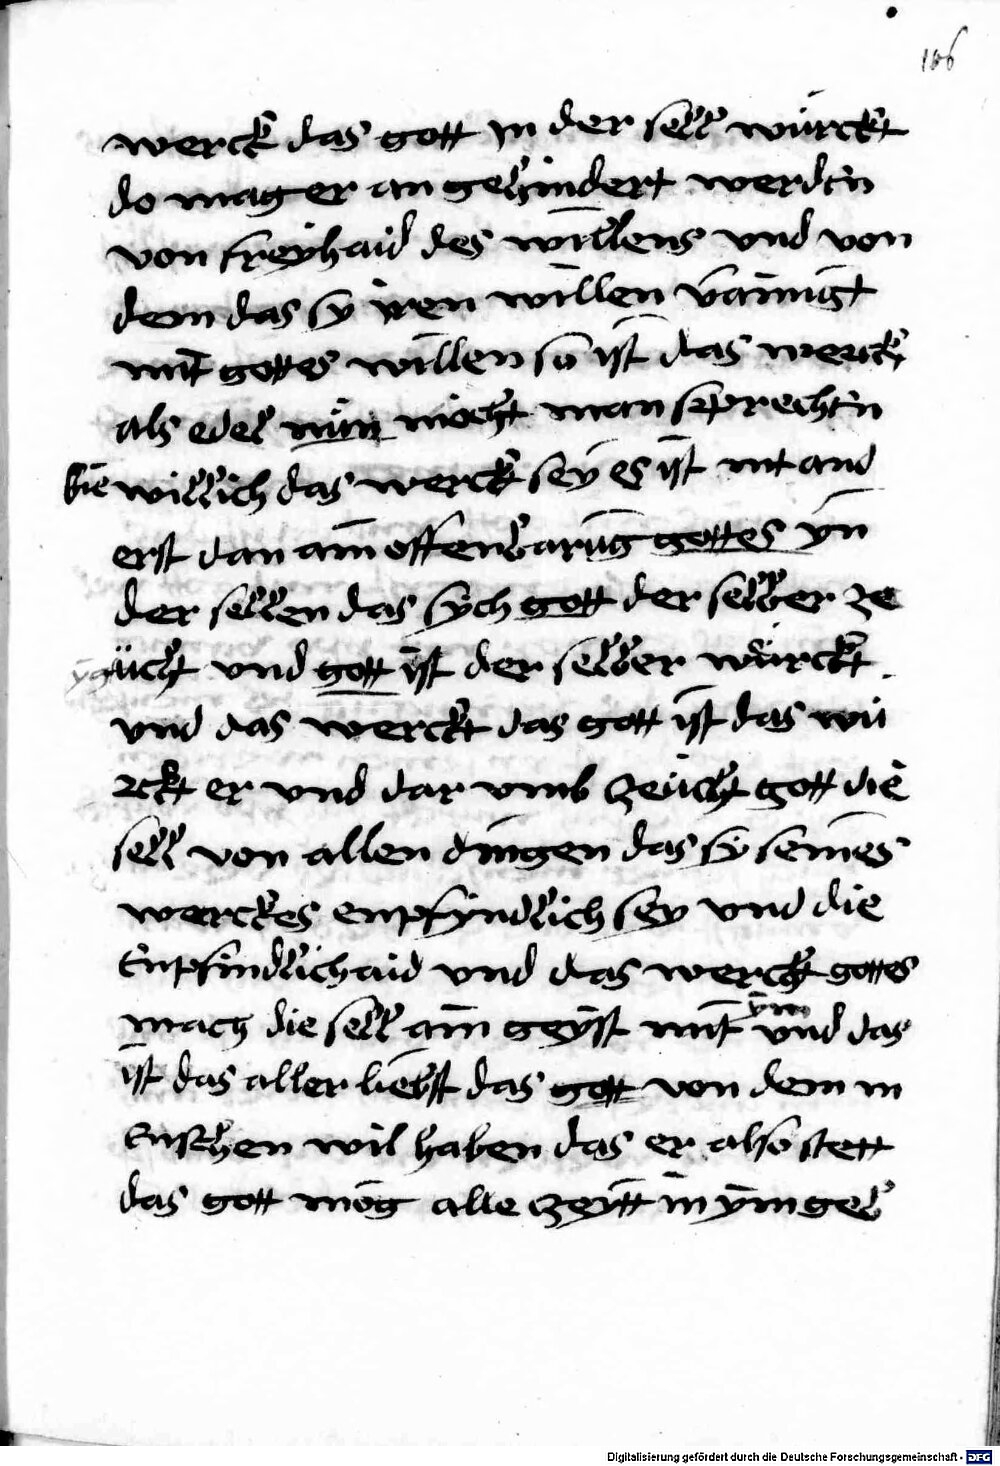 106
werck das gott jn der sell würckt
do mag er an gehindert werden
von freyhaid des willens vnd von
dem das sy iren willen vainigt
mit gottes willen so ist das werck
als edel nun möcht man sprechen
wie willich das werck sey es ist nit and
erst dan ain offenbarung gottes yn
der sellen das sych gott der selber ze
ücht vnd gott ist der selber würckt
vnd das werckt das gott ist das wü
rckt er vnd dar vmb zeücht gott die
sell von allen dingen das sy seines
werckes enpfyndlich sey vnd die
Enpfindlichaid vnd das werck gottes
mach die sell ain geyst mit ym vnd das
ist das aller liebst das gott von dem m
Enschen wil haben das er also stett
das gott mög alle zeytt in ym gel
Digitalisierung gefördert durch die Deutsche Forschungsgemeinschaft - DFG